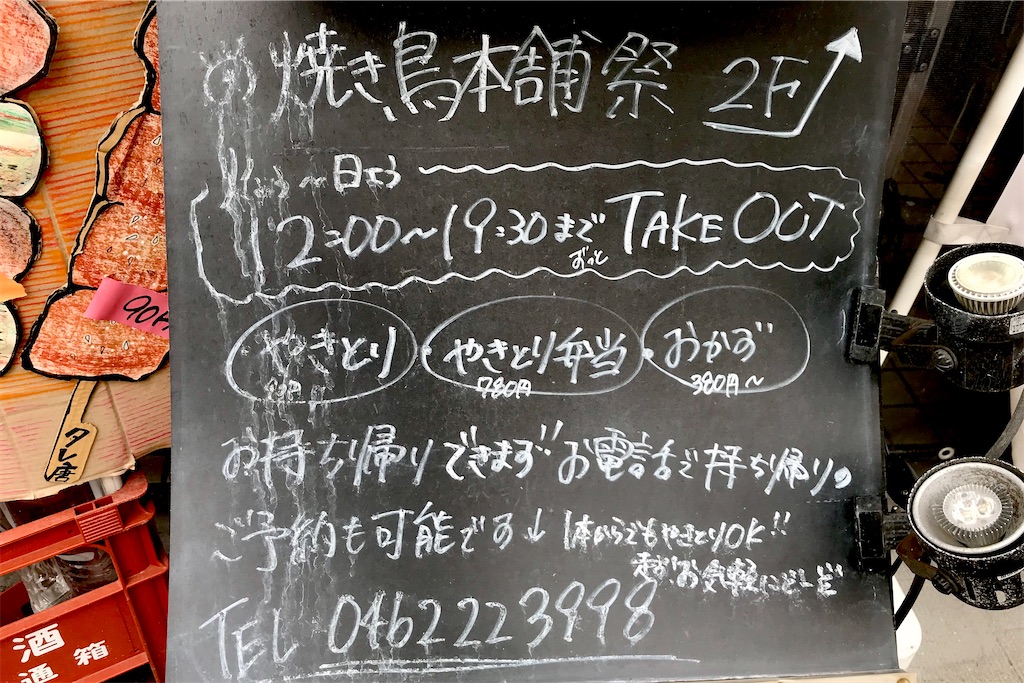 焼き鳥本舗祭 2F
～日よう
2:00～19:30まで TAKE OUT
ずっと
やきとり
やきとり弁当
780円
おかず
380円～
お持ち帰りできます お電話で持ち帰り。
ご予約も可能です↓ 1本からでもやきとりOK!!
お気軽にどーぞ
TEL 0462223998
90円
タレ唐
酒
通箱